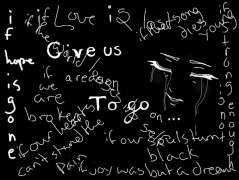 if hope is gone
if Love is
if the song dies young
if strong enough
Give us
if
we
are
a reason
To go on...
broken
if our hearts
can't stand the
Pain
if our souls turn
black
if joy was but a dream